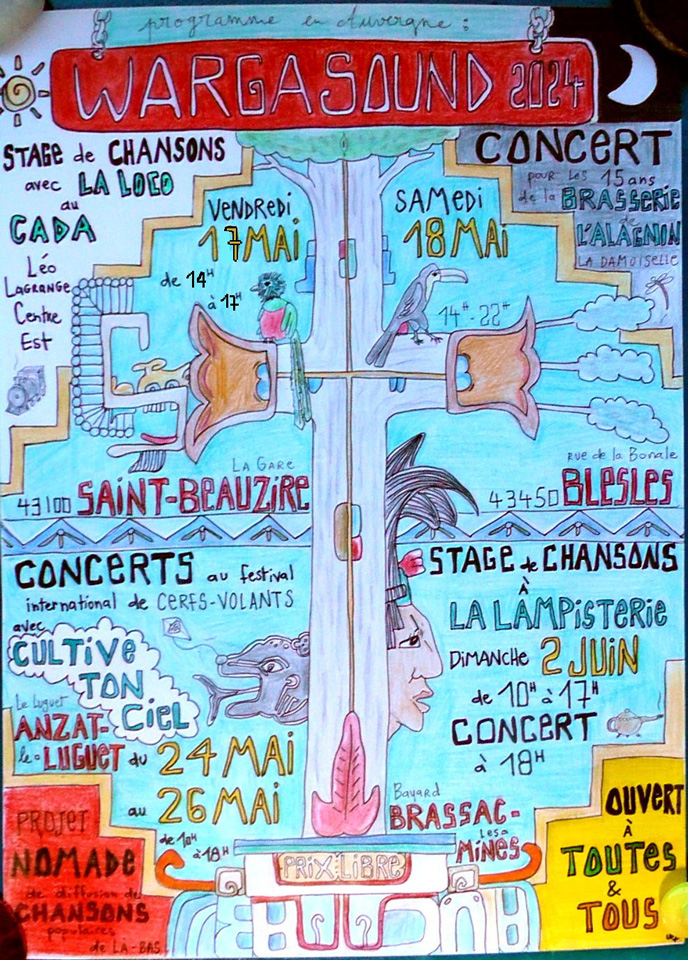 programme en Auvergne :
WARGASOUND 2024
STAGE de CHANSONS
avec LA LOCO
au
CADA
Léo
Lagrange
Centre
Est
VENDREDI
17 MAI
de 14H
à 17H
LA GARE
43100 SAINT-BEAUZIRE
CONCERT
pour les 15 ans
de la BRASSERIE
de
L'ALAGNON
LA DAMOISELLE
SAMEDI
18 MAI
14H-22H
rue de la Bonale
43450 BLESLES
CONCERTS au festival
international de CERFS-VOLANTS
avec
CULTIVE
TON
CIEL
Le Luguet
ANZAT-
le-LUGUET du
24 MAI
au 26 MAI
de 10H
à 18H
STAGE de CHANSONS
À
LA LAMPISTERIE
DIMANCHE 2 JUIN
de 10H à 17H
CONCERT
à 18H
Bayard
BRASSAC-
les-
MINES
PROJET
NOMADE
de diffusion de
CHANSONS
populaires
de LA-BAS
PRIX LIBRE
OUVERT
À
TOUTES
&
TOUS